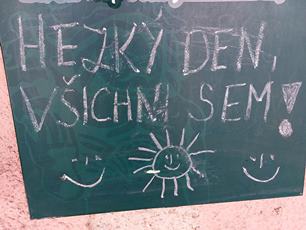 HEZKÝ DEN,
VŠICHNI SEM!